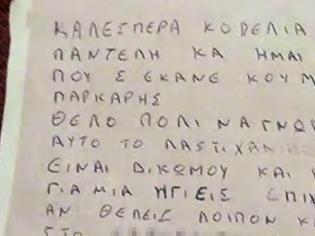 ΚΑΛΕΣΠΕΡΑ ΚΟΠΕΛΙΑ
ΠΑΝΤΕΛΗ ΚΑ ΗΜΑΙ
ΠΟΥ Σ ΕΚΑΝΕ ΚΟΥΜ
ΠΑΡΚΑΡΗΣ
ΘΕΛΟ ΠΟΛΙ ΝΑ ΓΝΩΡ
ΑΥΤΟ ΤΟ
ΕΙΝΑΙ ΔΙΚΩΜΟΥ ΚΑΙ
ΓΙΑ ΜΙΑ ΗΓΙΕΙΣ ΕΠΙΧ
ΑΝ ΘΕΛΕΙΣ ΛΟΙΠΟΝ Κ
ΣΤΟ